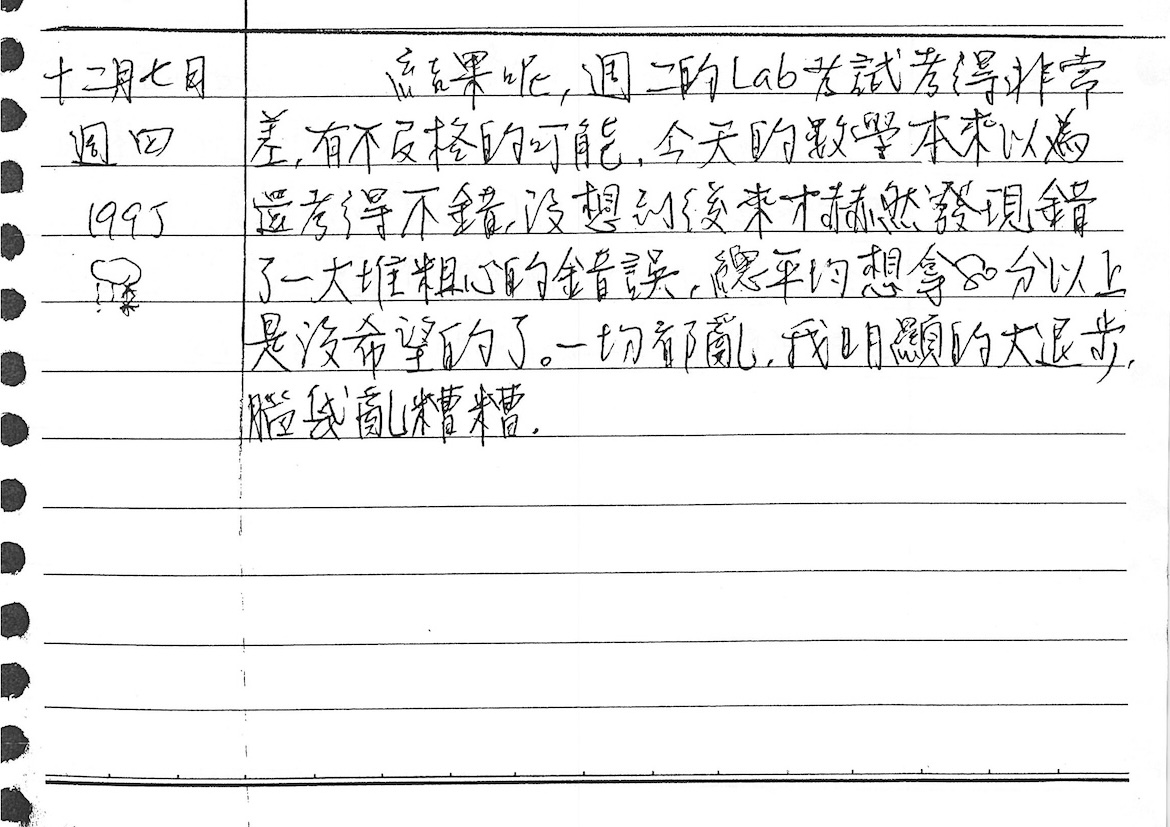 十二月七日
週四
1995
結果呢,週二的Lab考試考得非常
差,有不及格的可能,今天的數學本來以為
還考得不錯,沒想到後來才赫然發現錯
了一大堆粗心的錯誤,總平均想拿80分以上
是沒希望的了。一切都亂,我明顯的大退步,
腦袋亂糟糟.